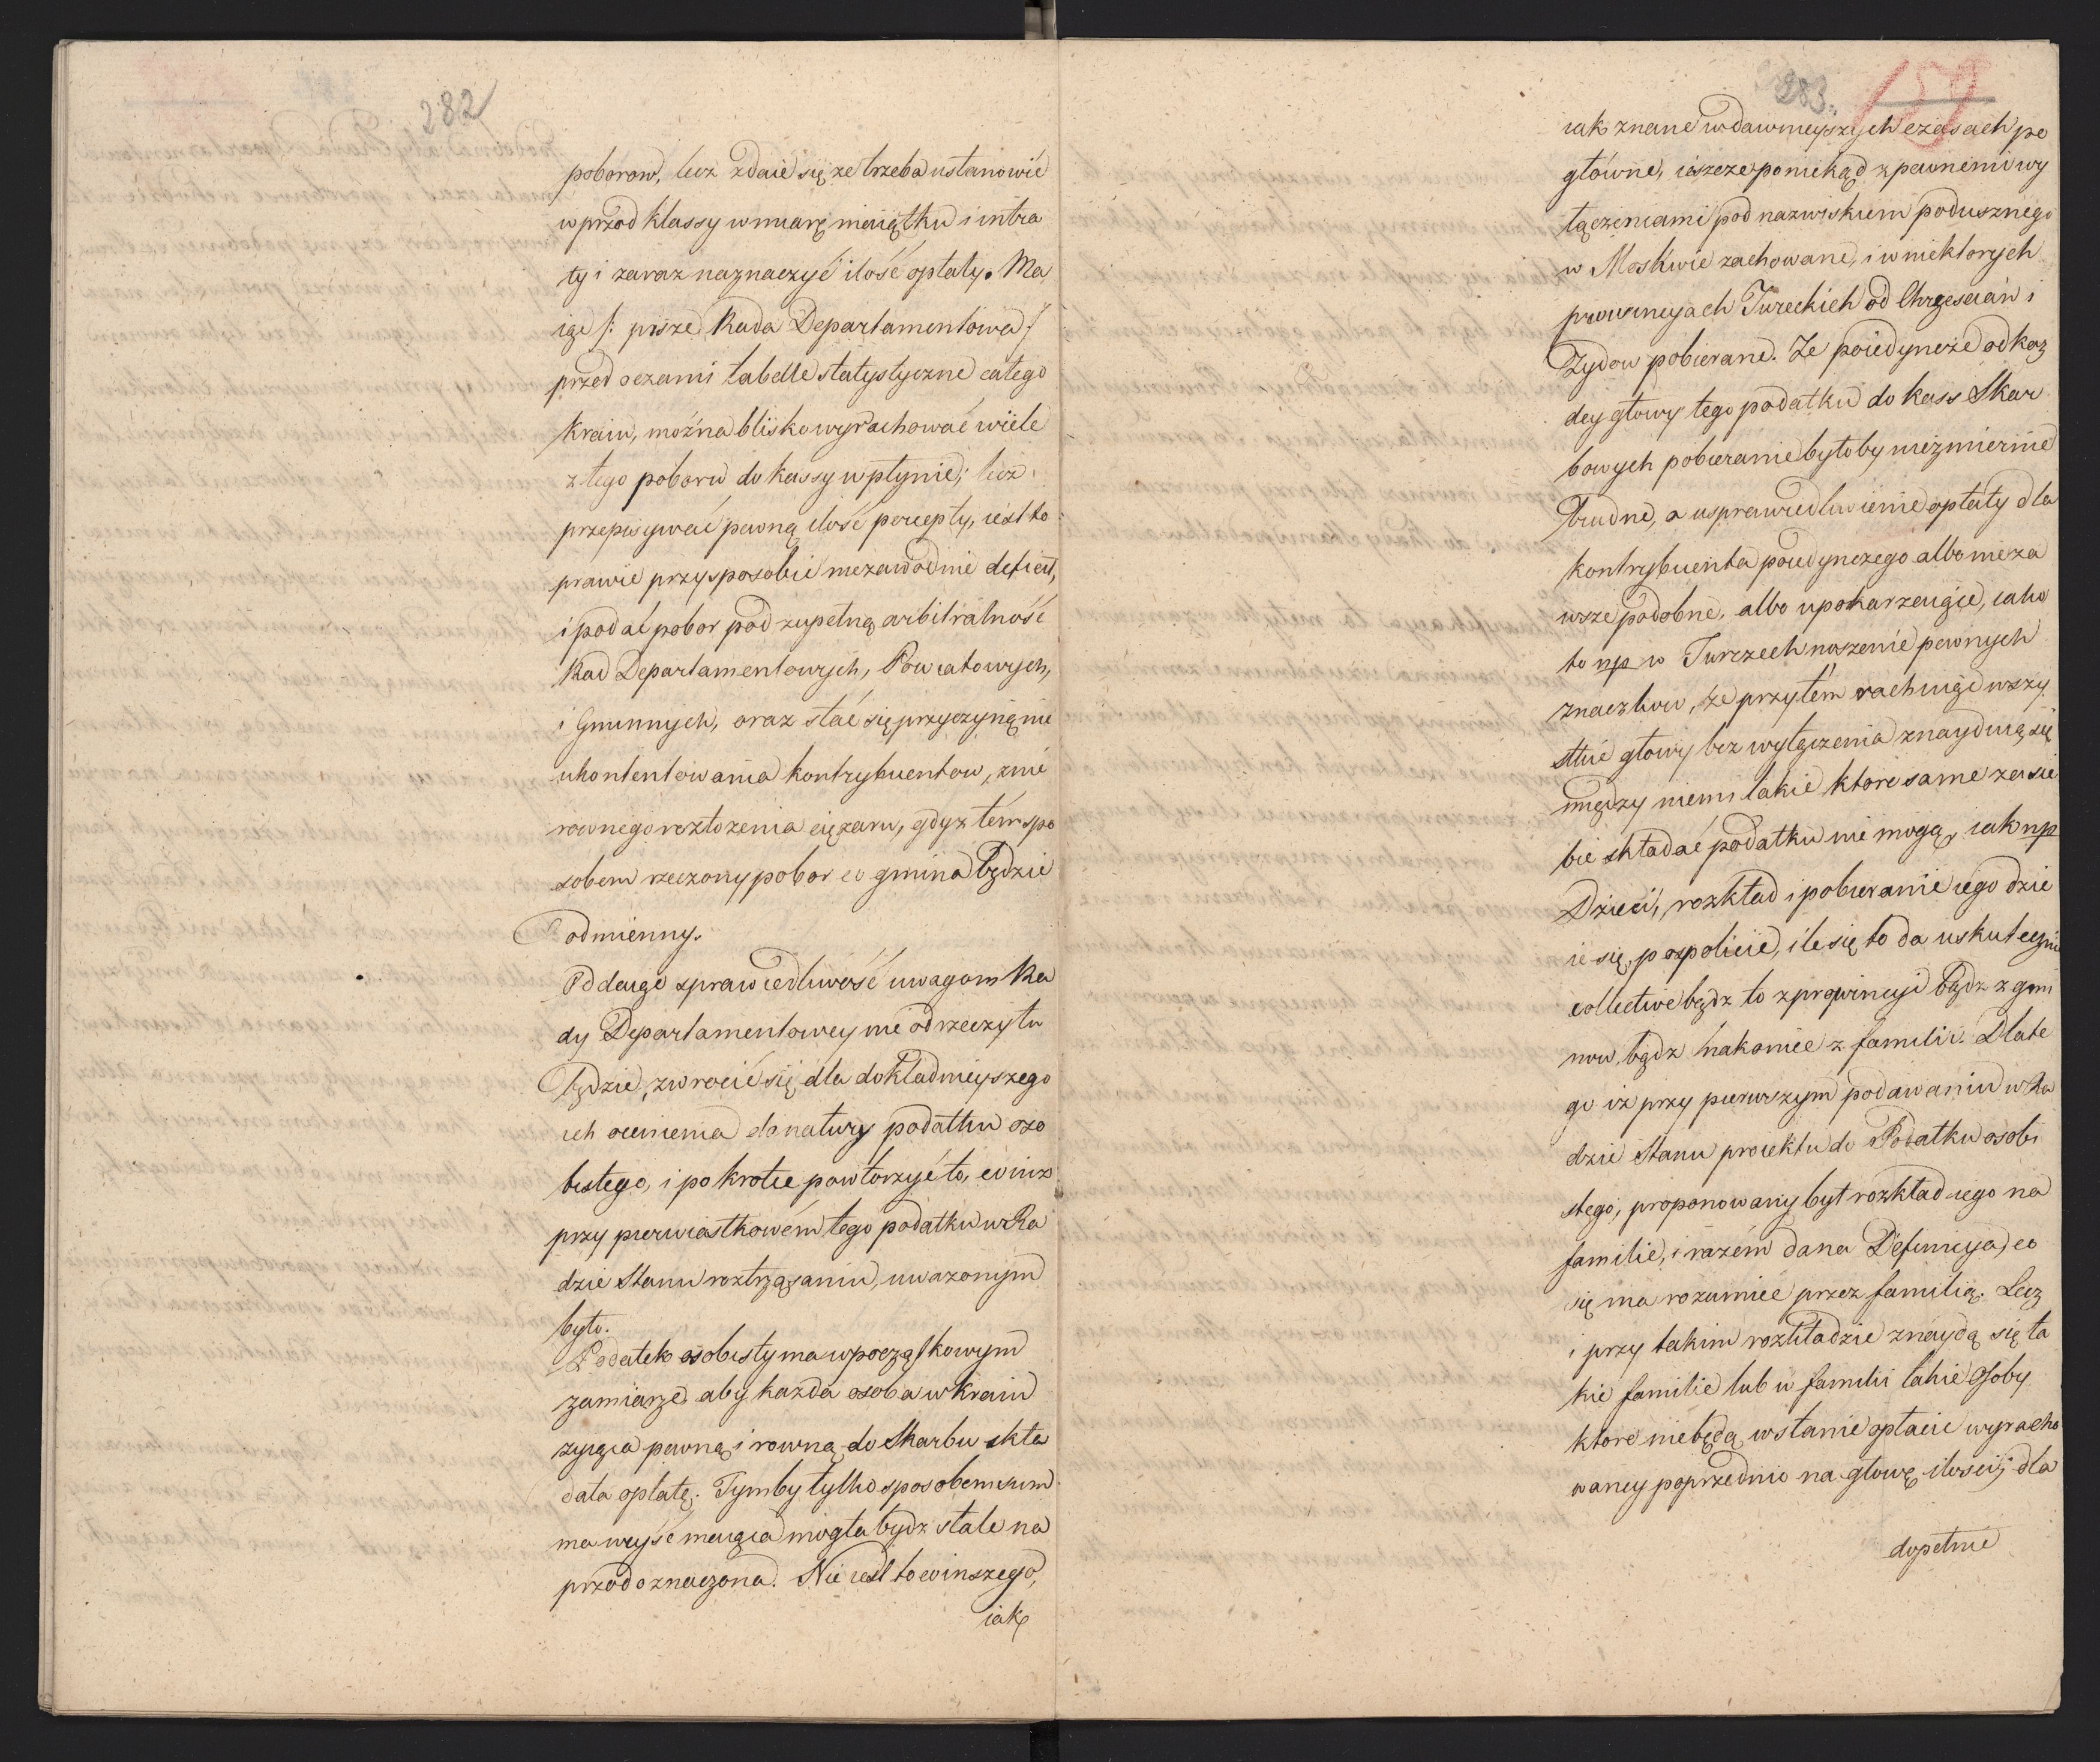 282
poborow, lecz zdaie się ze trzeba ustanowić
wprzod klassy w miarę maiątku i intra
ty i zaraz naznaczyć ilość opłaty. Ma
iąc /: pisze Rada Departamentowa :/
przed oczami tabelle statystyczne całego
Kraiu, można blisko wyrachować wiele
z tego poboru do kassy wpłynie; lecz
przepisywać pewną ilość percepty, iest to
prawie przysposobić niezawodnie deficit,
i podać pobor pod zupełną arbitralność
Rad Departamentowych, Powiatowych,
i Gminnych, oraz stać się przyczyną nie
ukontentowania kontrybuentow, z nie
rownego rozłożenia ciężaru, gdyż tém spo
sobem rzeczony pobor co gmina będzie
odmienny.
Oddaiąc sprawiedliwość uwagom Ra
dy Departamentowey nie od rzeczy tu
będzie, zwrocić się dla dokładnieyszego
ich ocenienia do natury podatku oso
bistego, i po krotce powtorzyć to, co iuż
przy pierwiastkowém tego podatku w Ra
dzie Stanu roztrząsaniu, uważonym
było.
Podatek osobisty ma w początkowym
zamiarze, aby każda osoba w Kraiu
żyiąca pewną i rowną do Skarbu skła
dała opłatę. Tymby tylko sposobem sum
ma weyść maiąca mogła bydz stale na
przod oznaczona. Nie iest to co inszego,
iak
283.
159
iak znane w dawnieyszych czasach po
głowne, ieszcze poniekąd z pewnemi wy
łączeniami pod nazwiskiem podusznego
w Moskwie zachowane, i w niektorych
prowincyach Tureckich od Chrześcian i
Żydow pobierane. Ze poiedyncze od każ
dey głowy tego podatku do kass Skar
bowych pobieranie byłoby niezmiernie
trudne, a usprawiedliwienie opłaty dla
kontrybuenta poiedynczego albo nie za
wsze podobne, albo upokarzaiące, iako
to np w Turczech noszenie pewnych
znaczkow, że przytém rachuiąc wszy
stkie głowy bez wyłączenia znayduią się
między niemi takie ktore same za sie
bie składać podatku nie mogą, iak np
Dzieci, rozkład i pobieranie iego dzie
ie się pospolicie, ile się to da uskutecznić
collective bądz to z prowincyi bądz z gmi
now, bądz nakoniec z familii. Dlate
go iż przy pierwszym podawaniu w Ra
dzie Stanu proiektu do Podatku osobi
stego, proponowany był rozkład iego na
familie, i razém dana Definicya, co
się ma rozumieć przez familią. Lecz
i przy takim rozkładzie znaydą się ta
kie familie lub w familii takie Osoby
ktore nie będą w stanie opłacić wyracho
waney poprzednio na głowę ilości; dla
dopełnie